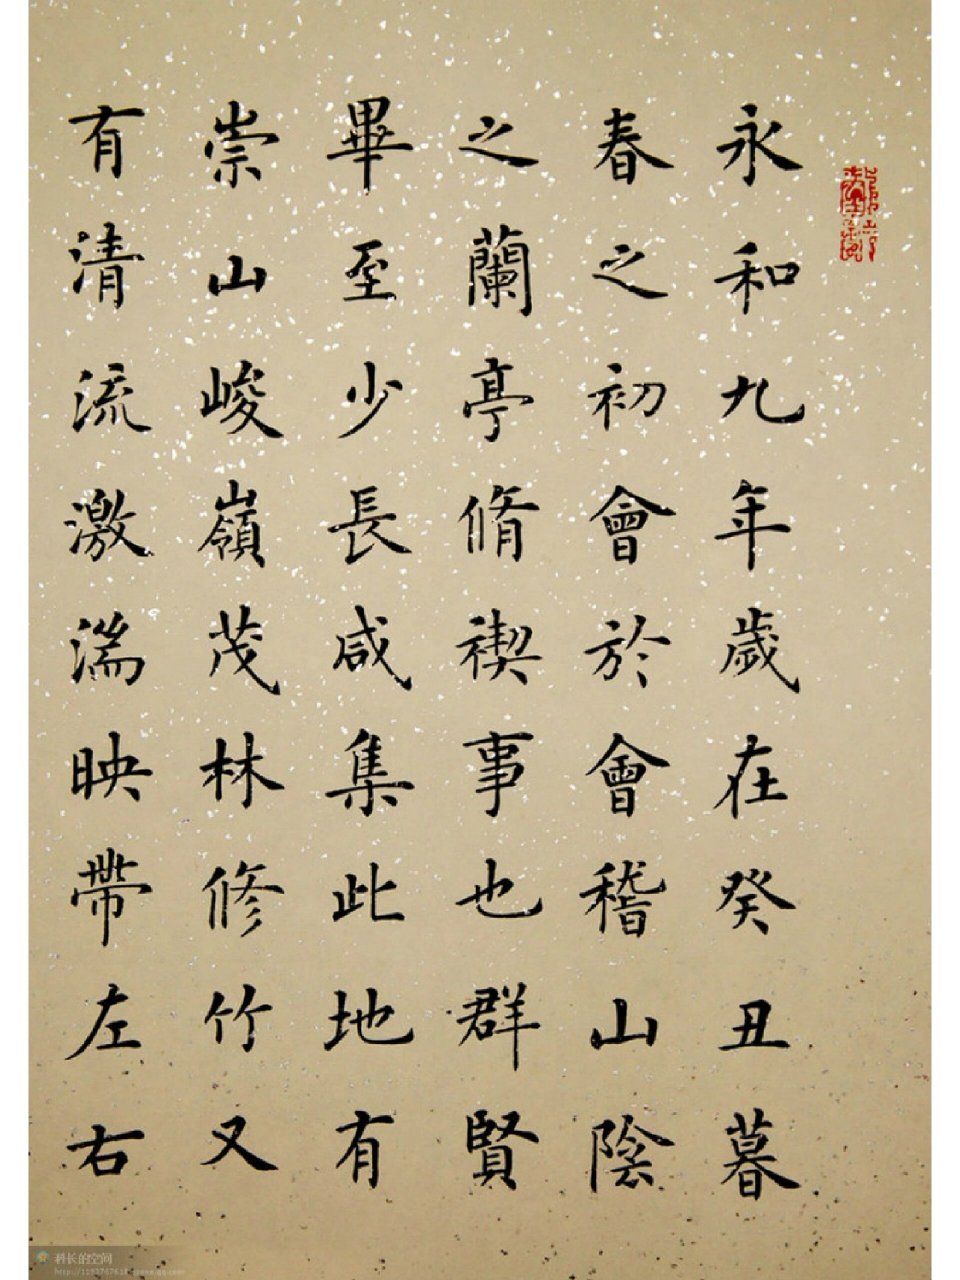 永和九年歲在癸丑暮
春之初會於會稽山陰
之蘭亭脩禊事也群賢
畢至少長咸集此地有
崇山峻嶺茂林修竹又
有清流激湍映帶左右
科长的空间